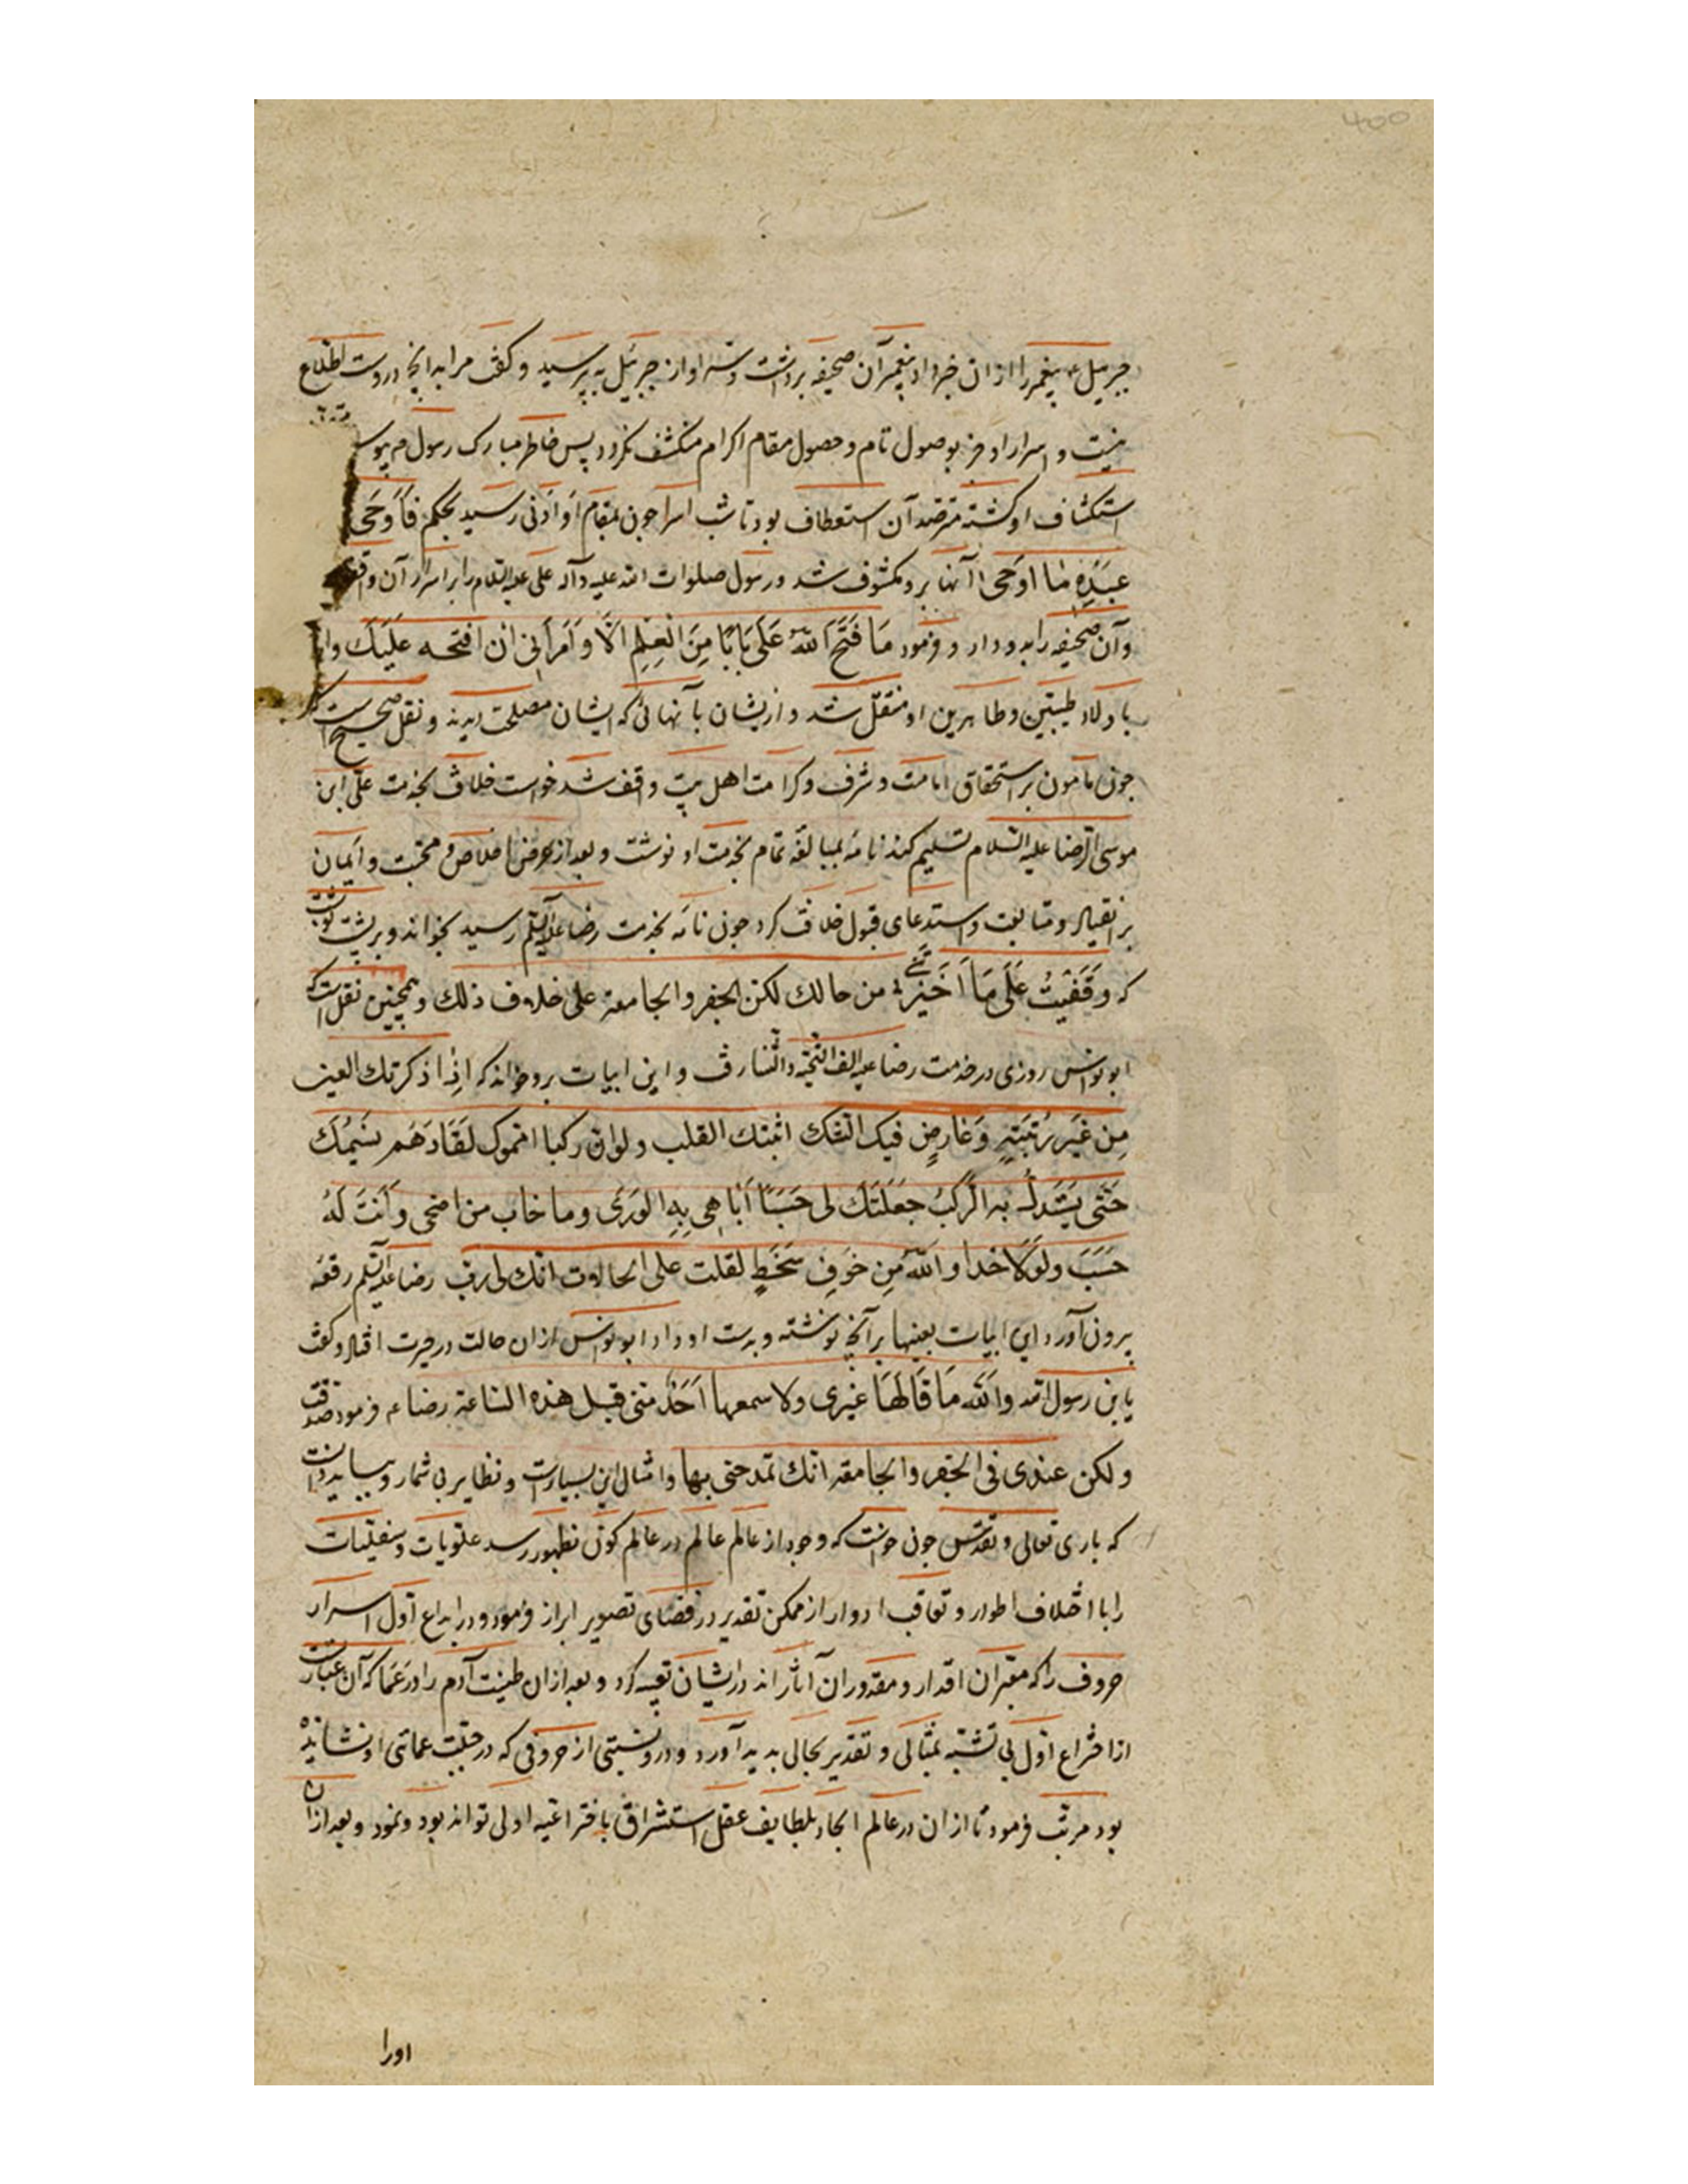 400
جبرئیل ع پیغمبر را ازان خبر داد پیغمبر آن صحیفه برداشت و سر او از جبرئیل بپرسید و گفت مرا بدانچه دروست اطلاع
نیست و اسرار او جز بوصول تام و حصول مقام اکرام منکشف نگردد پس خاطر مبارک رسول م
استکشاف او گشته مترصد آن استعطاف بود تا شب اسرا چون بمقام او ادنی رسید بحکم فَاَوحَی
عَبدِهِ مَا اَوحَی آنها برو مکشوف شد و رسول صلوات الله علیه و آله علی علیه السلام را بر اسرار آن
و آن صحیفه را بدو داد و فرمود مَا فَتَحَ اللّٰهُ عَلَیَّ بَابًا مِنَ العِلمِ اِلَّا وَ اَمَرَنِی ان افتحه عَلَیکَ
باولاد طیبین و طاهرین او منتقل شد و ازیشان بآنهائی که ایشان مصلحت دیدند و نقل صحیح است که
چون مامون بر استحقاق امامت و شرف و کرامت اهل بیت واقف شد خواست خلافت بخدمت علی ابن
موسی الرضا علیه السلام تسلیم کند نامهٔ بمبالغه تمام بخدمت او نوشت و بعد از عرض اخلاص و محبت و ایمان
بر انقیاد و متابعت و استدعای قبول خلافت کرد چون نامه بخدمت رضا علیه السلم رسید بخواند و بر پشت نوشت
که وَقَفتُ عَلَی مَا اَخبَرتَنِی من حالک لکن الجفر و الجامعة علی خلاف ذلک و همچنین نقل است که
ابو نواس روزی در خدمت رضا علیه الف التحیة و الثنا رفت و این ابیات برو خواند که اِذا ذکرتک العین
مِن غَیرِ رُتبَتِهِ وَ عَارِضٍ فیک الشک اثبتک القلب و لو ان رکبا امموک لَقَادَهُم نسیمُک
حَتّی یَستَدلَّ به الرَّکبُ جَعَلتُکَ لی حَسَبًا اُبَاهِی بِهِ الوَرَی و ما خاب من اضحی وَ اَنتَ لَهُ
حَسَبَ وَلَولَا خدا و اللّٰه مِن خَوفِ سَخَطٍ لقلت علی الحالات انک لی رب رضا علیه السلم رقعه
بیرون آورد این ابیات بعینها بر آنجا نوشته و بدست او داد ابو نواس ازان حالت در حیرت افتاد و گفت
یا بن رسول الله وَاللّٰه مَا قَالَهَا غیری ولا سمعها اَحَدٌ منّی قبل هذه الساعة رضا م فرمود صدقت
ولکن عندی فی الجفر و الجامعة انک تمدحنی بها و امثال این بسیارست و نظایر بی شمار و بباید دانست
که باری تعالی و تقدس چون خواست که وجود از عالم عالم در عالم کون بظهور رسد علویات و سفلیات
را با اختلاف اطوار و تعاقب ادوار از ممکن تقدیر در فضای تصویر ابراز فرمود و در ابداع اول اسرار
حروف را که معبران اقدار و مقدوران آثار اند در ایشان تعبیه کرد و بعد ازان طینت آدم را در عما که آن عبارتست
از اختراع اول بی تشبّه بمثالی و تقدیر بحالی بدید آورد و درو نسبتی از حروفی که در جبلت عمائی او نشانیده
بود مرتب فرمود تا ازان در عالم ایجاد بلطایف عقل استشراق باختراعیه اولی تواند بود و نمود و بعد ازان
اورا